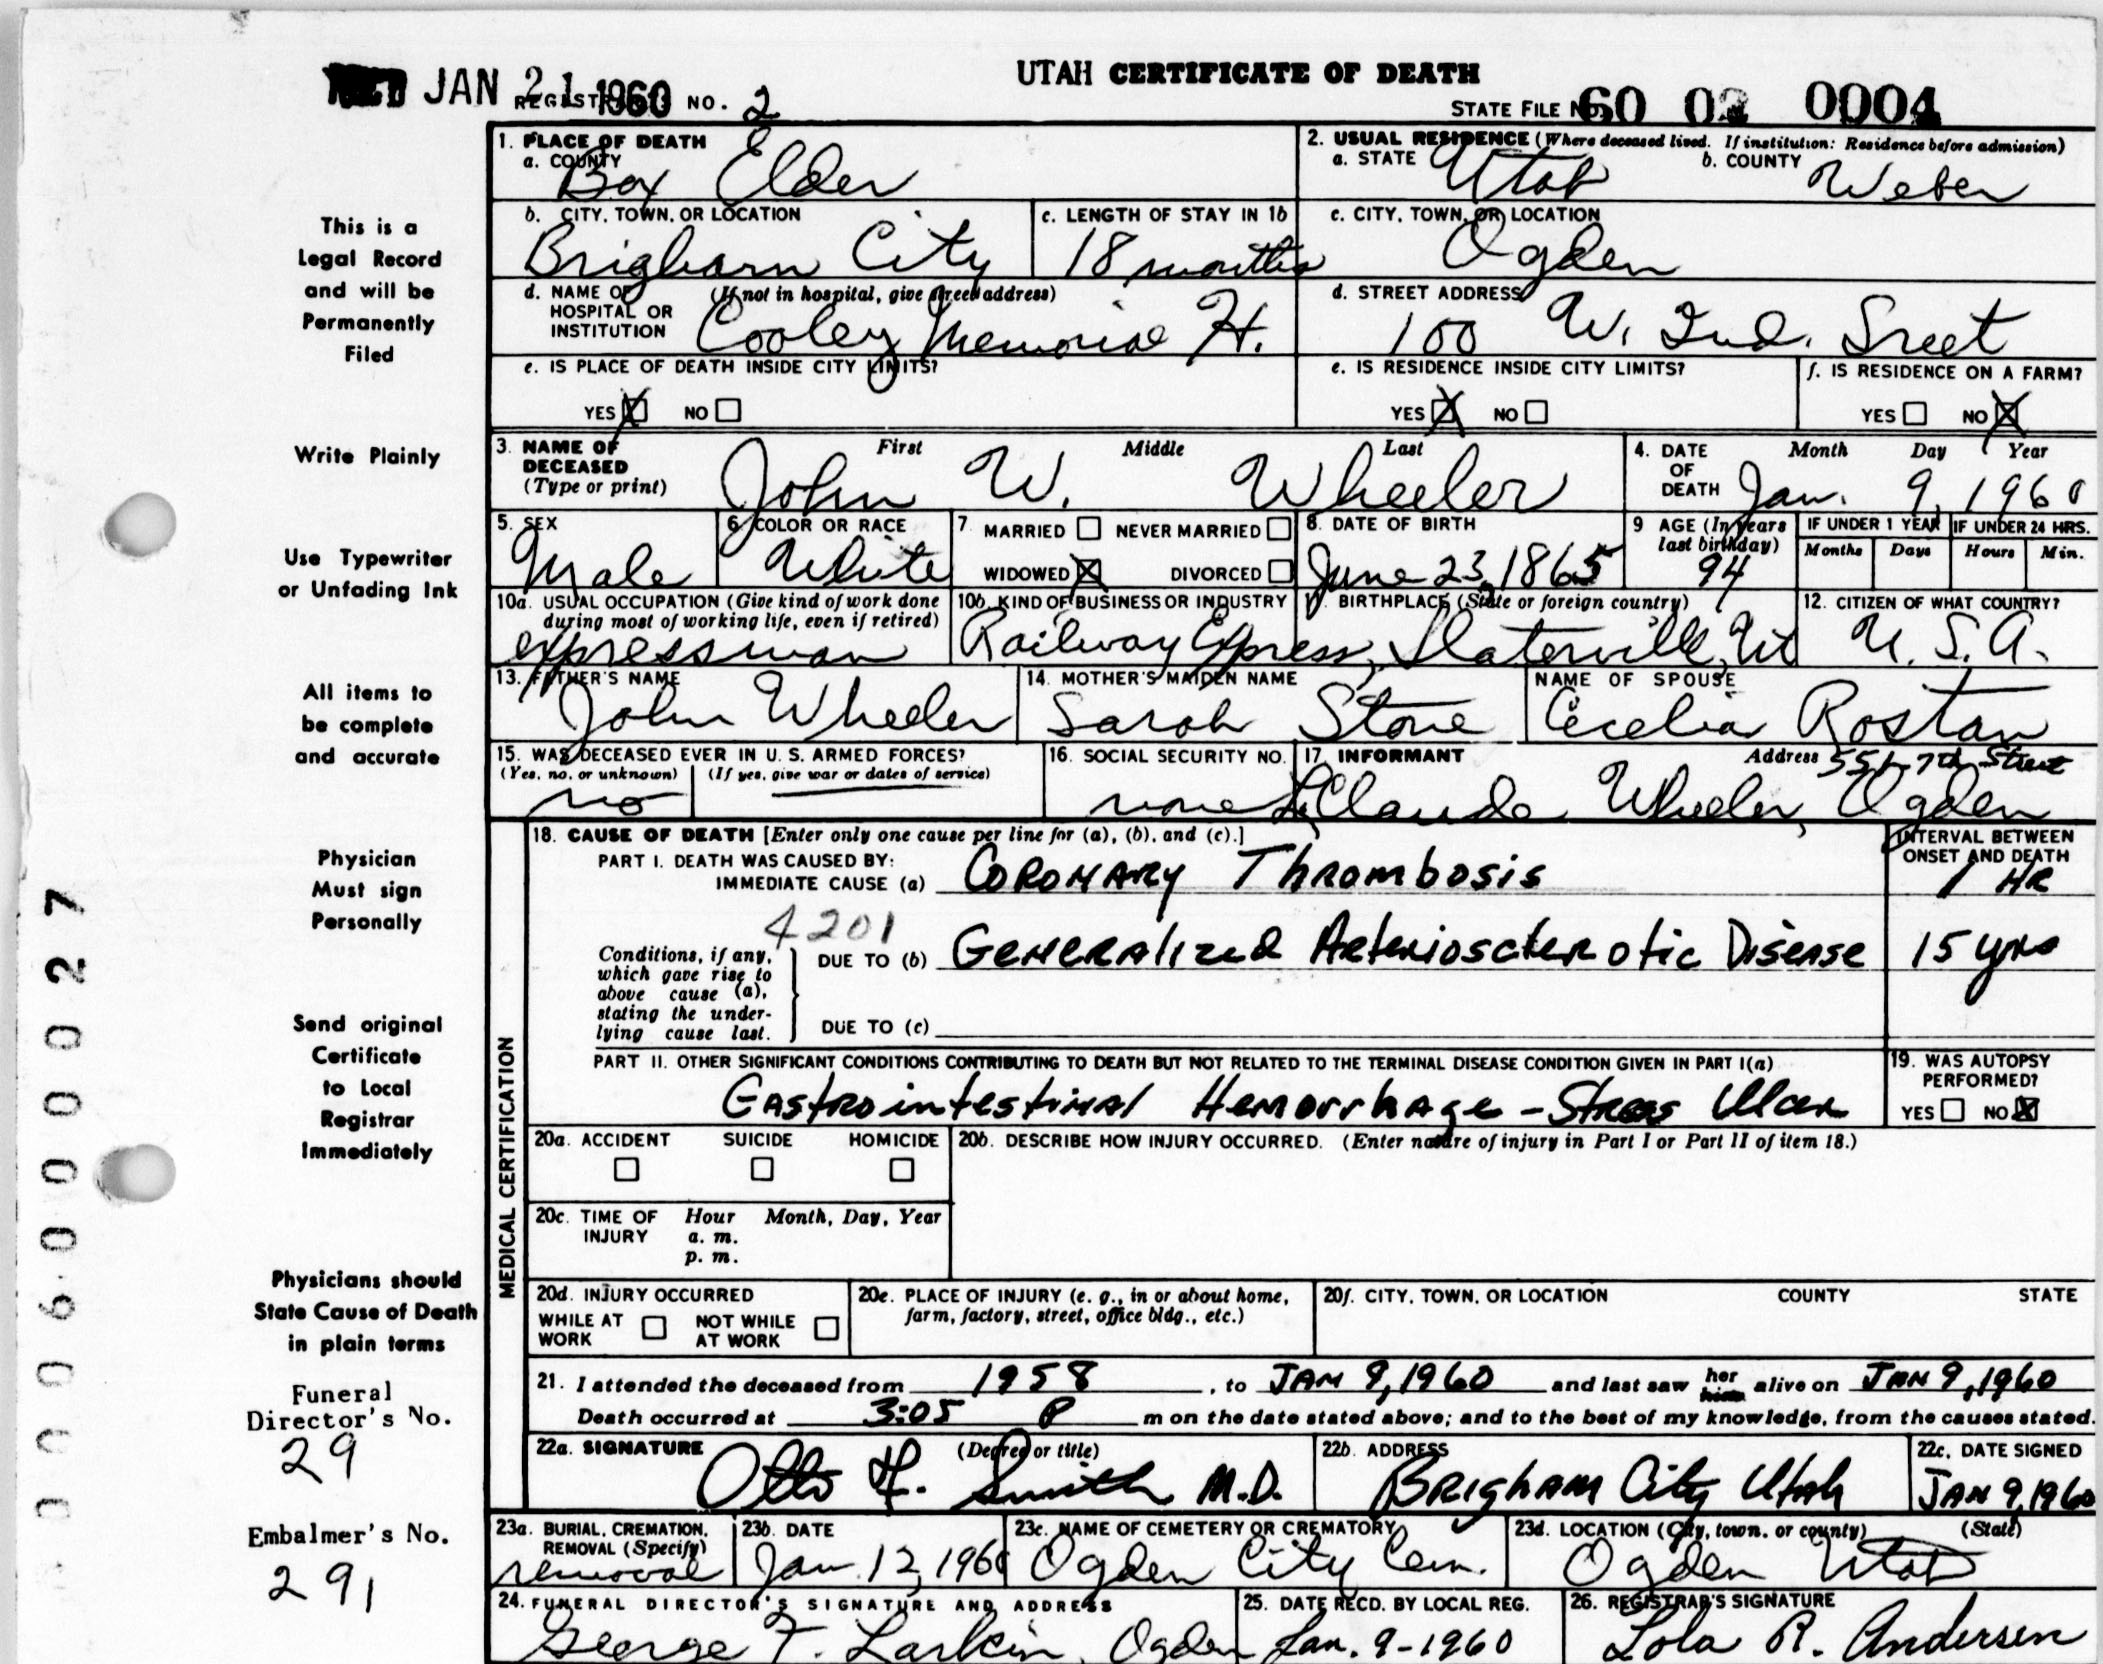 REC'D JAN 21 1960 REGISTRAR'S NO. 2
UTAH CERTIFICATE OF DEATH
STATE FILE NO. 60 02 0004
1. PLACE OF DEATH
a. COUNTY Box Elder
2. USUAL RESIDENCE (Where deceased lived. If institution: Residence before admission)
a. STATE Utah b. COUNTY Weber
b. CITY, TOWN, OR LOCATION Brigham City
c. LENGTH OF STAY IN 1b 18 months
c. CITY, TOWN, OR LOCATION Ogden
d. NAME OF HOSPITAL OR INSTITUTION (If not in hospital, give street address) Cooley Memorial H.
d. STREET ADDRESS 100 W. 2nd. Sreet
e. IS PLACE OF DEATH INSIDE CITY LIMITS?
YES X NO
e. IS RESIDENCE INSIDE CITY LIMITS?
YES X NO
f. IS RESIDENCE ON A FARM?
YES NO X
3. NAME OF DECEASED (Type or print) First Middle Last
John W. Wheeler
4. DATE OF DEATH Month Day Year
Jan. 9, 1960
5. SEX Male
6. COLOR OR RACE White
7. MARRIED NEVER MARRIED
WIDOWED X DIVORCED
8. DATE OF BIRTH June 23, 1865
9 AGE (In years last birthday) 94
IF UNDER 1 YEAR Months Days
IF UNDER 24 HRS. Hours Min.
10a. USUAL OCCUPATION (Give kind of work done during most of working life, even if retired) expressman
10b. KIND OF BUSINESS OR INDUSTRY Railway Express,
11. BIRTHPLACE (State or foreign country) Slaterville, Ut
12. CITIZEN OF WHAT COUNTRY? U. S. A.
13. FATHER'S NAME John Wheeler
14. MOTHER'S MAIDEN NAME Sarah Stone
NAME OF SPOUSE Cecelia Rostan
15. WAS DECEASED EVER IN U. S. ARMED FORCES?
(Yes, no, or unknown) (If yes, give war or dates of service)
no
16. SOCIAL SECURITY NO. none
17 INFORMANT Address 551-7th Street
L. Claude Wheeler, Ogden
MEDICAL CERTIFICATION
18. CAUSE OF DEATH [Enter only one cause per line for (a), (b), and (c).]
INTERVAL BETWEEN ONSET AND DEATH
PART I. DEATH WAS CAUSED BY:
IMMEDIATE CAUSE (a) Coronary Thrombosis 1 HR
4201
Conditions, if any, which gave rise to above cause (a), stating the underlying cause last.
DUE TO (b) Generalized Arteriosclerotic Disease 15 yrs
DUE TO (c)
PART II. OTHER SIGNIFICANT CONDITIONS CONTRIBUTING TO DEATH BUT NOT RELATED TO THE TERMINAL DISEASE CONDITION GIVEN IN PART I(a)
Gastrointestinal Hemorrhage - Stress Ulcer
19. WAS AUTOPSY PERFORMED?
YES NO X
20a. ACCIDENT SUICIDE HOMICIDE
20b. DESCRIBE HOW INJURY OCCURRED. (Enter nature of injury in Part I or Part II of item 18.)
20c. TIME OF INJURY Hour Month, Day, Year
a. m.
p. m.
20d. INJURY OCCURRED
WHILE AT WORK NOT WHILE AT WORK
20e. PLACE OF INJURY (e. g., in or about home, farm, factory, street, office bldg., etc.)
20f. CITY, TOWN, OR LOCATION COUNTY STATE
21. I attended the deceased from 1958, to JAN 9, 1960 and last saw her him alive on JAN 9, 1960
Death occurred at 3:05 P m on the date stated above; and to the best of my knowledge, from the causes stated.
22a. SIGNATURE (Degree or title) Otto F. Smith M.D.
22b. ADDRESS Brigham City Utah
22c. DATE SIGNED JAN 9, 1960
23a. BURIAL, CREMATION, REMOVAL (Specify) removal
23b. DATE Jan. 12, 1960
23c. NAME OF CEMETERY OR CREMATORY Ogden City Cem.
23d. LOCATION (City, town, or county) (State) Ogden Utah
24. FUNERAL DIRECTOR'S SIGNATURE AND ADDRESS
George F. Larkin, Ogden
25. DATE RECD. BY LOCAL REG. Jan. 9-1960
26. REGISTRAR'S SIGNATURE Lola R. Andersen
This is a
Legal Record
and will be
Permanently
Filed
Write Plainly
Use Typewriter
or Unfading Ink
All items to
be complete
and accurate
Physician
Must sign
Personally
Send original
Certificate
to Local
Registrar
Immediately
Physicians should
State Cause of Death
in plain terms
Funeral
Director's No.
29
Embalmer's No.
291
0006000027